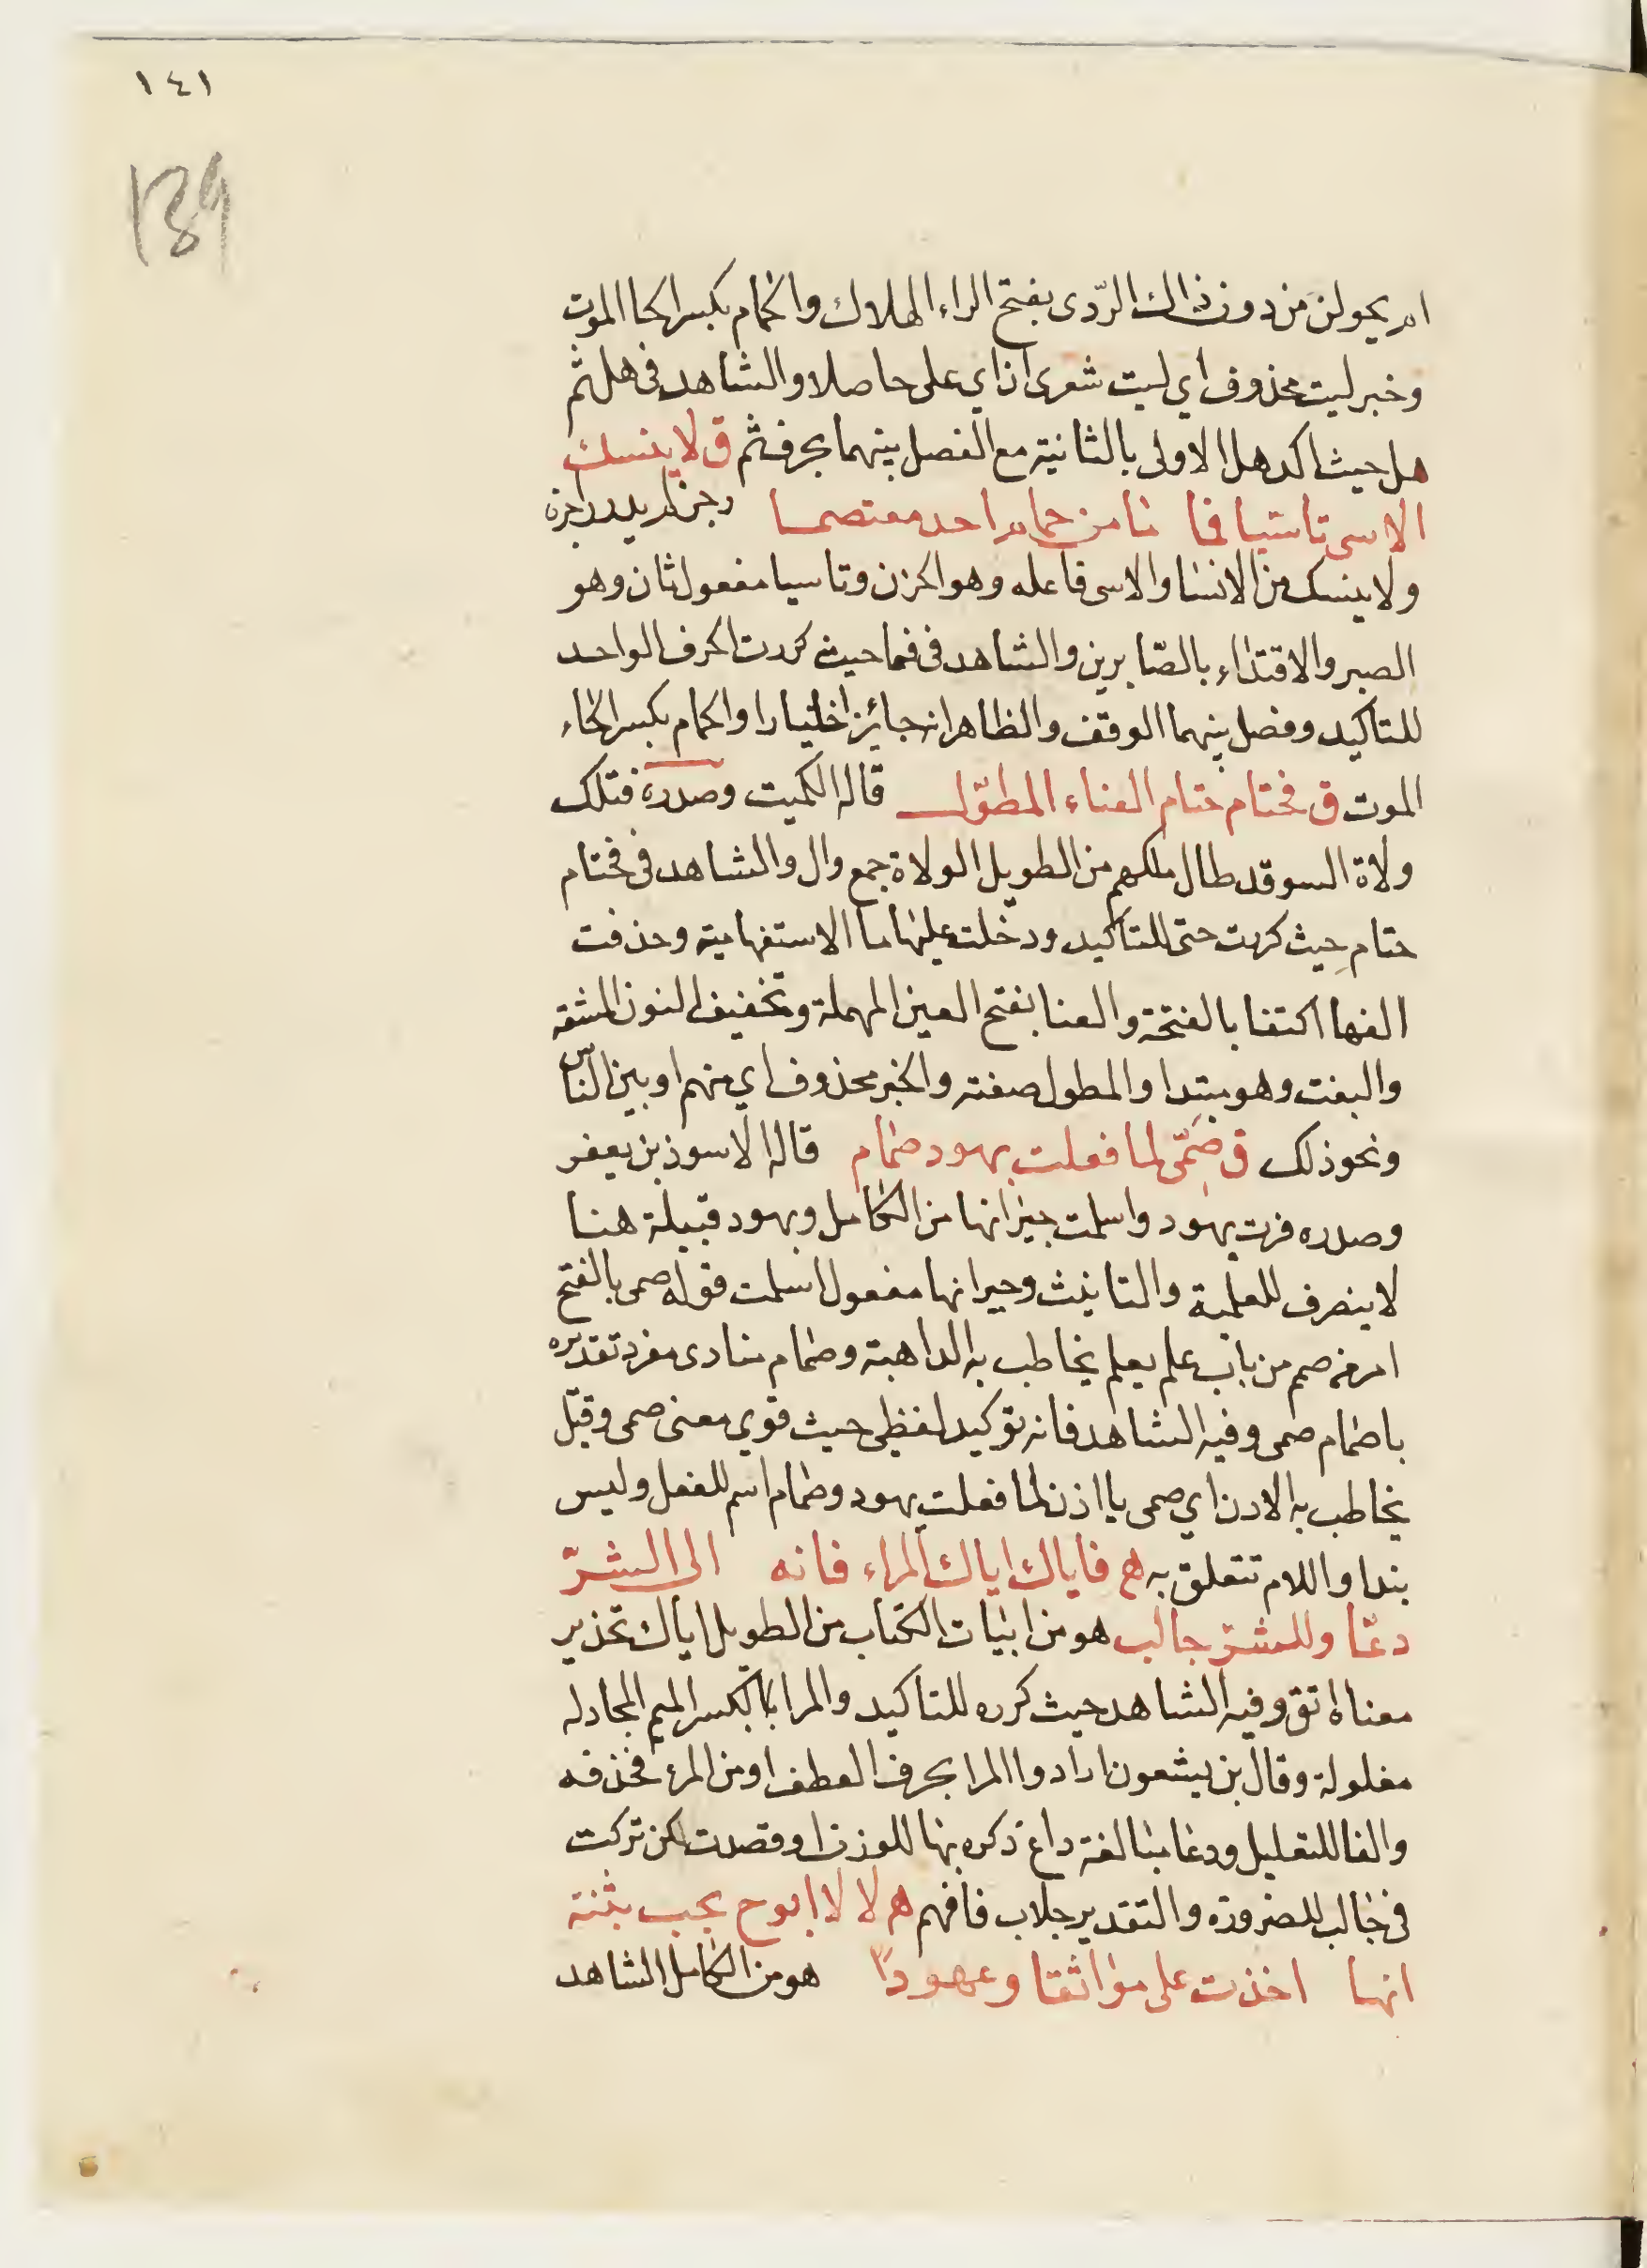 ١٤١
139
ام يحولن من دون ذاك الردّى بفتح الراء الهلاك والحمام بكسر الحا الموت
وخبر ليت محذوف اي ليت شعرى اذاي على حاصلا والشاهد فى هل ثم
هل حيث اكد هل الاولى بالثانية مع الفصل بينهما بحرف ثم ق لا ينسك
الاسى تاسيا فما نا من حمام احد معتصما رجز لم يدر راجزه
ولا ينسك من الانسا والاسى فاعله وهو الحزن وتاسيا مفعول ثان وهو
الصبر والاقتداء بالصّابرين والشاهد فى فما حيث كررت الحرف الواحد
للتاكيد وفصل بينهما الوقف والظاهر انه جائز اختيارا والحمام بكسر الحاء
الموت ق فحتام حتام العناء المطوّل قاله الكميت وصدره فتلك
ولاة السو قد طال ملكهم من الطويل الولاة جمع وال والشاهد فى فحتام
حتام حيث كررت حتى للتاكيد ودخلت عليها ما الاستفهامية وحذفت
الفها اكتفا بالفتحة والعنا بفتح العين المهملة وتخفيف النون المشقة
والبغت وهو مبتدا والمطول صفته والخبر محذوف اي منهم او بين الناس
ونحو ذلك ق صَمّى لما فعلت يهود صمام قاله الاسود بن يعفر
وصدره فرت يهود واسلمت جيرانها من الكامل ويهود قبيلة هنا
لا ينصرف للعلمية والتانيث وجيرانها مفعول اسلمت قوله صمى بالفتح
امر من صم من باب علم يعلم يخاطب به الداهية وصمام منادى مفرد تقديره
ياصمام صمى وفيه الشاهد فانه توكيد لفظى حيث قوي معنى صمى وقيل
يخاطب به الادن اي صمى يا اذن لما فعلت يهود وصمام اسم للفعل وليس
بندا واللام تتعلق به هع فاياك اياك المراء فانه الى الشرّ
دعّا وللشرّ جالب هو من ابيات الكتاب من الطويل اياك تحذير
معناه اتق وفيه الشاهد حيث كرره للتاكيد والمرا بالكسر الميم المجادله
مغلولة وقال بن يسعون ارادوا المرا بحرف العطف او من المرء فحذفه
والفا للتعليل ودعا مبالغة داع ذكره بها للوزن او قصدت لكن تركت
فى جالب للضرورة والتقدير جلاب فافهم هـ لا لا ابوح بحب بثنة
انها اخذت على مواثقا وعهودًا هو من الكامل الشاهد